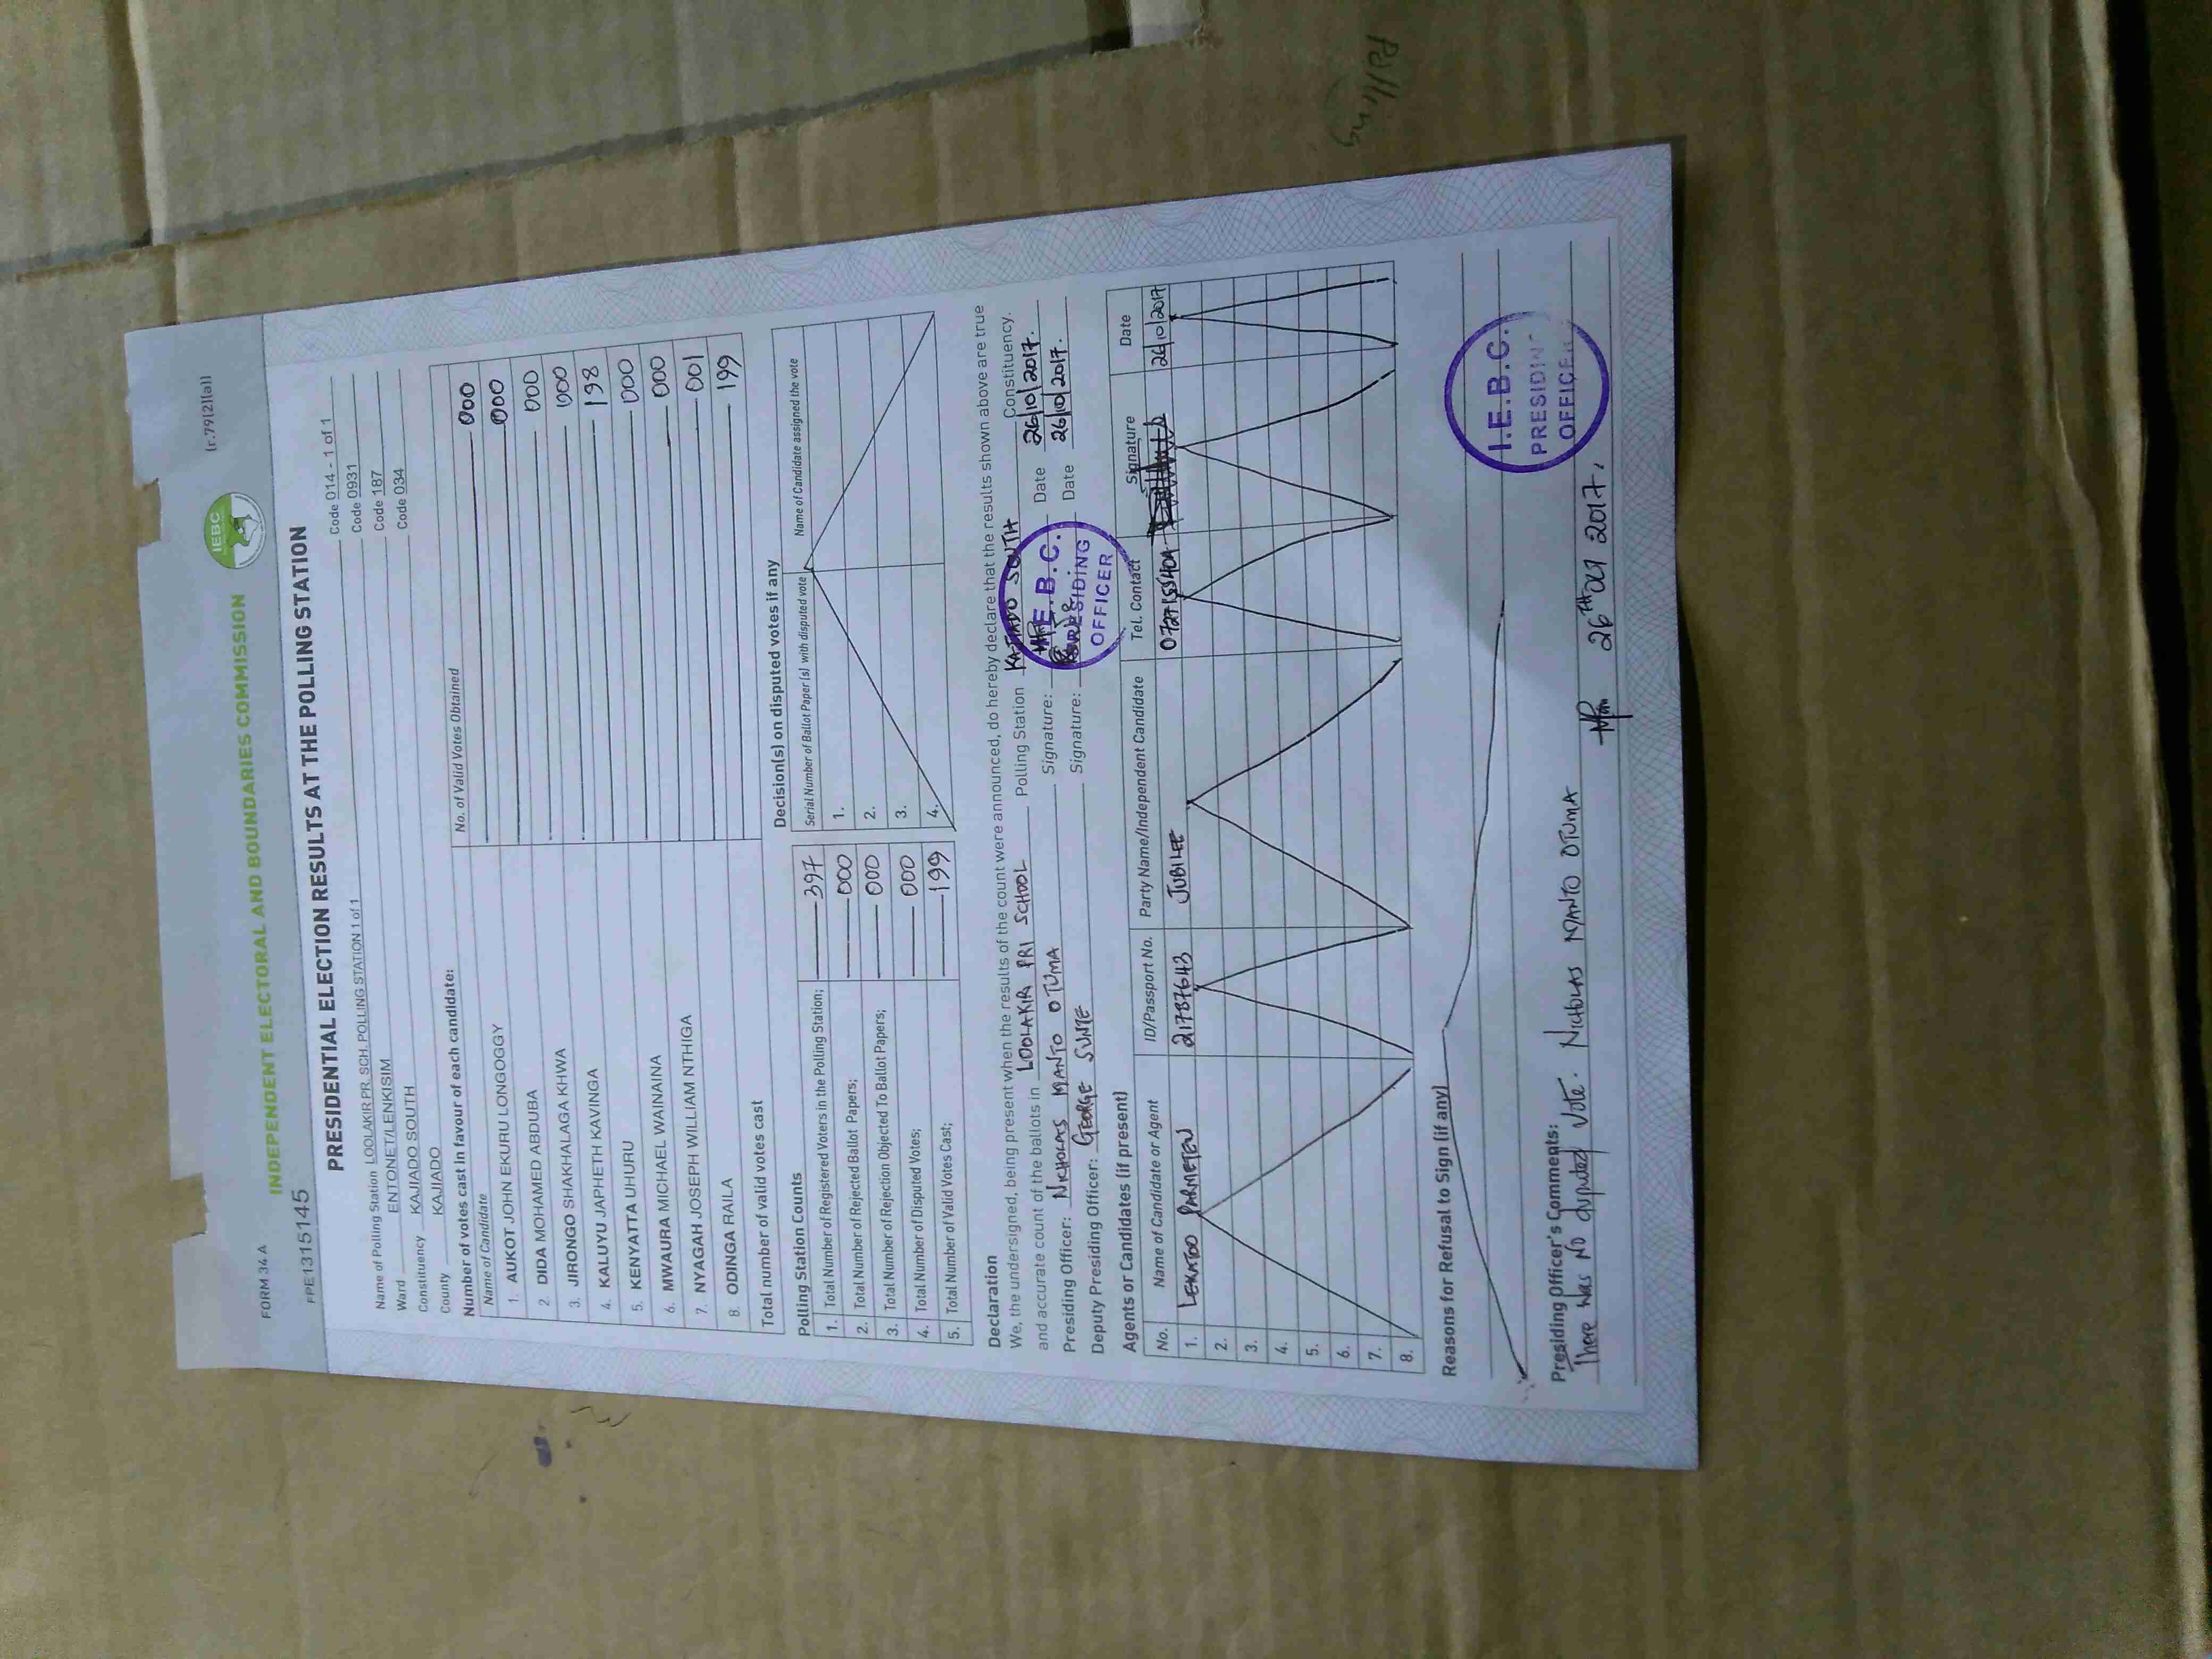 FORM 34 A
(r.79(2)(a))
IEBC
INDEPENDENT ELECTORAL AND BOUNDARIES COMMISSION
PPE1315145
PRESIDENTIAL ELECTION RESULTS AT THE POLLING STATION
Name of Polling Station LOOLAKIR PR. SCH. POLLING STATION 1 of 1 Code 014 - 1 of 1
Ward ENTONET/LENKISIM Code 0931
Constituency KAJIADO SOUTH Code 187
County KAJIADO Code 034
Number of votes cast in favour of each candidate:
Name of Candidate No. of Valid Votes Obtained
1. AUKOT JOHN EKURU LONGOGGY 000
2. DIDA MOHAMED ABDUBA 000
3. JIRONGO SHAKHALAGA KHWA 000
4. KALUYU JAPHETH KAVINGA 000
5. KENYATTA UHURU 198
6. MWAURA MICHAEL WAINAINA 000
7. NYAGAH JOSEPH WILLIAM NTHIGA 000
8. ODINGA RAILA 001
Total number of valid votes cast 199
Polling Station Counts
1. Total Number of Registered Voters in the Polling Station; 397
2. Total Number of Rejected Ballot Papers; 000
3. Total Number of Rejection Objected To Ballot Papers; 000
4. Total Number of Disputed Votes; 000
5. Total Number of Valid Votes Cast; 199
Decision(s) on disputed votes if any
Serial Number of Ballot Paper (s) with disputed vote Name of Candidate assigned the vote
1.
2.
3.
4.
Declaration
We, the undersigned, being present when the results of the count were announced, do hereby declare that the results shown above are true
and accurate count of the ballots in LOOLAKIR PRI SCHOOL Polling Station KAJIADO SOUTH Constituency.
Presiding Officer: NICHOLAS MANTO OTUMA Signature: Date 26/10/2017.
Deputy Presiding Officer: GEORGE SUNTE Signature: Date 26/10/2017.
I.E.B.C.
PRESIDING
OFFICER
Agents or Candidates (if present)
No. Name of Candidate or Agent ID/Passport No. Party Name/Independent Candidate Tel. Contact Signature Date
1. PARMETEU 21787643 JUBILEE 26/10/2017
2.
3.
4.
5.
6.
7.
8.
Reasons for Refusal to Sign (if any)
Presiding Officer's Comments:
There was no disputed vote. NICHOLAS MANTO OTUMA 26TH OCT 2017.
I.E.B.C.
PRESIDING
OFFICER
Polling